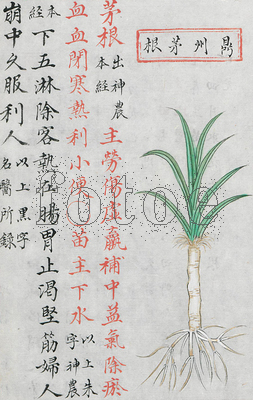 鼎州茅根
茅根出神農本經主勞傷虛羸補中益氣除瘀
血血閉寒熱利小便苗主下水以上朱字神農
本經下五淋除客熱在腸胃止渴堅筋婦人
崩中久服利人以上黑字名醫所錄
fotoe